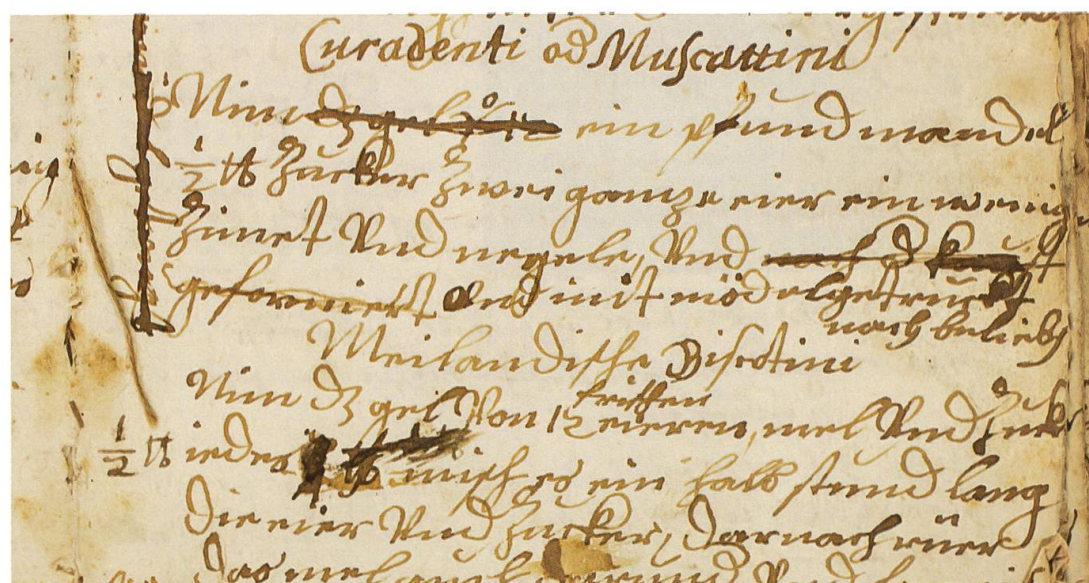 Curadenti od Muscattini
Nim dz gel ein pfund mandel
½ ℔ Zucker Zwei ganze eier ein wenig
Zimet Und negele, Und nach d kunst
geformiert Und mit mödel getruckt
nach beliebe
Meilandische Biscotini
Nim dz gel Von 12 frischen eieren, mel Und Zuker
½ ℔ iedes ℔ misch es ein halb stund lang
die eier Und Zucker, darnach rüer
das mel